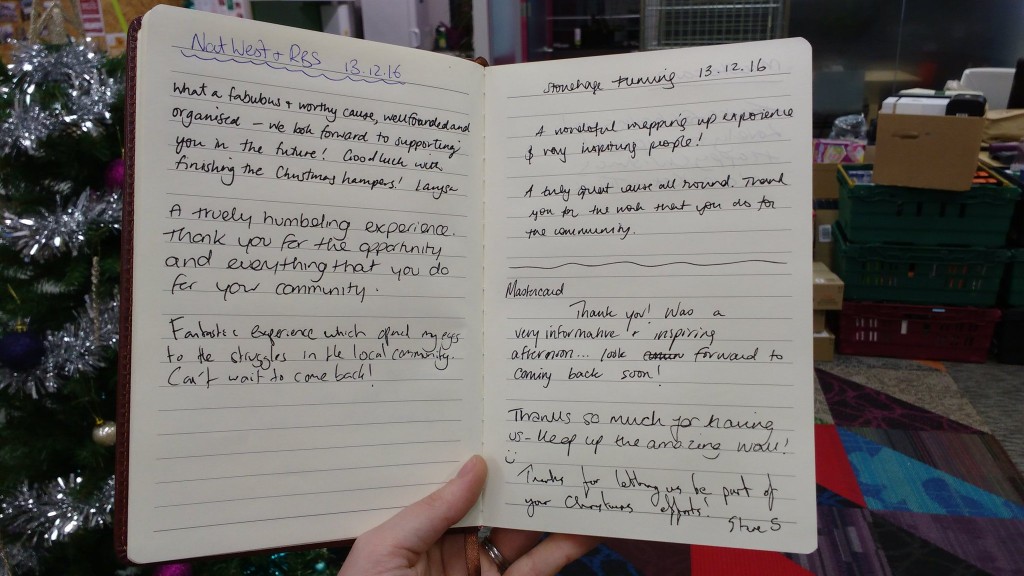 NatWest + RBS 13.12.16
What a fabulous + worthy cause, well founded and
organised – we look forward to supporting
you in the future! Good luck with
finishing the Christmas hampers!
A truely humbeling experience.
Thank you for the opportunity
and everything that you do
for your community.
Fantastic experience which opened my eyes
to the struggles in the local community.
Can't wait to come back!
13.12.16
A wonderful wrapping up experience
& very inspiring people!
A truly great cause all round. Thank
you for the work that you do for
the community.
Mastercard
Thank you! Was a
very informative + inspiring
afternoon... look forward to
coming back soon!
Thanks so much for having
us - keep up the amazing work!
:)
Thanks for letting us be part of
your Christmas efforts!
Steve S